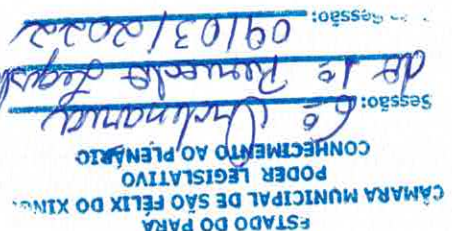 ESTADO DO PARÁ
CÂMARA MUNICIPAL DE SÃO FÉLIX DO XING
PODER LEGISLATIVO
CONHECIMENTO AO PLENÁRIO
Sessão: 6º Ordinaria
da 1º Periodo Legisl
Sessão: 09/03/2022